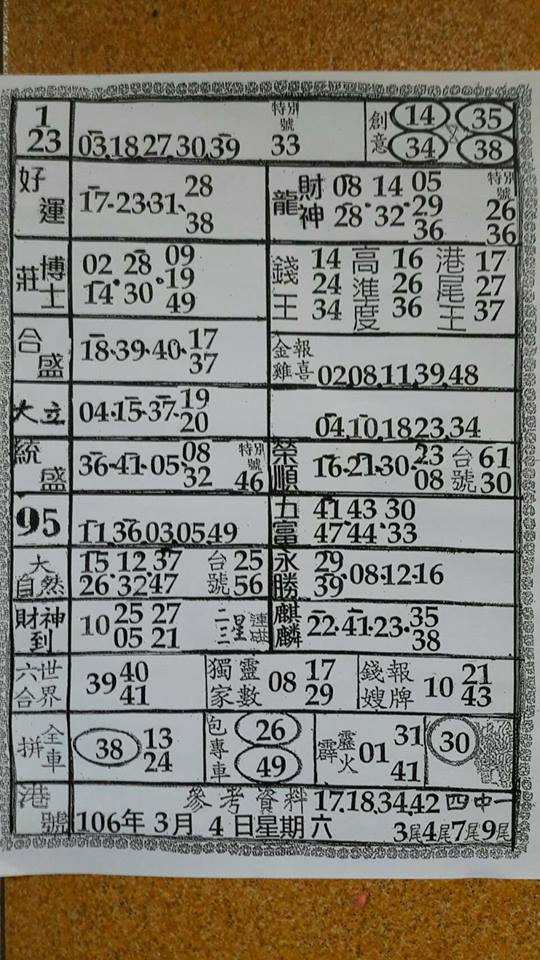 1
23
03.18.27.30.39
特別號
33
創意
14 35
又
34 38
好運
17-23-31
28
38
龍
財神
08 14 05
28 32 29
36
特別號
26
36
莊博士
02 28 09
14 30 19
49
錢王
14
24
34
高進度
16
26
36
港尾王
17
27
37
合盛
18-39-40
17
37
金雞報喜
02.08.11.39.48
大立
04-15-37
19
20
04.10.18.23.34
統盛
36-41-05
08
32
特別號
46
榮順
16-21-30
23
08
台號
61
30
95
11.36.03.05.49
五富
41 43 30
47 44 33
大自然
15 12 37
26 32 47
台號
25
56
永勝
29
39
08-12-16
財神到
10
25 27
05 21
二三星連碰
麒麟
22-41-23
35
38
六合世界
39
40
41
獨家靈數
08
17
29
錢嫂報牌
10
21
43
拼全車
38
13
24
包專車
26
49
霹靂火
01
31
41
30
港號
參考資料 17.18.34.42 四中一
106年 3月 4日星期六
3尾4尾7尾9尾